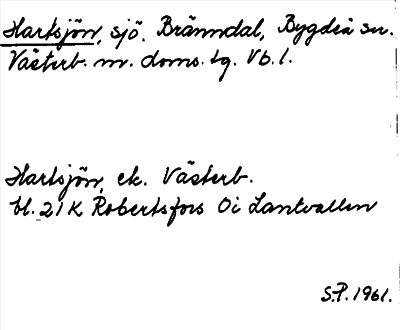 Hartsjön, sjö. Bränndal, Bygdeå sn.
Västerb. m. doms. tg. Vb. l.
Hartsjön, ek. Västerb.
bl. 21 K Robertsfors 0i Lantvallen
S.P. 1961.